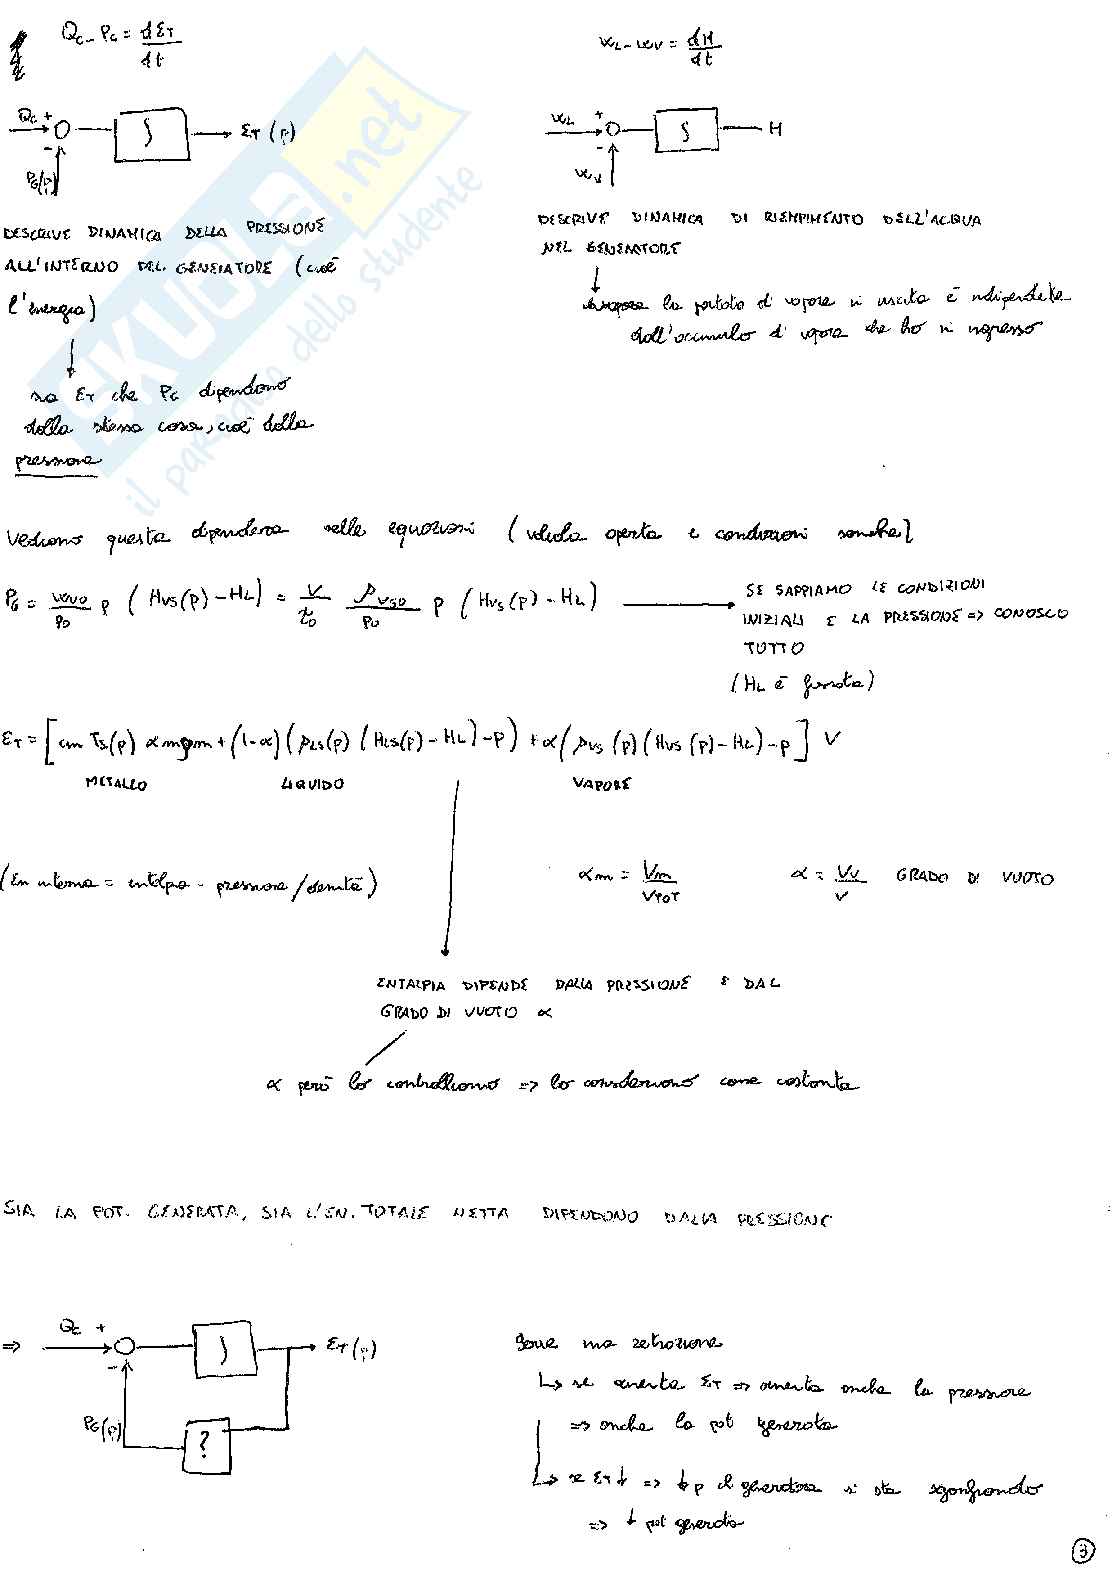 Qc - PG = dET/dt
Qc +
-
PG(p)
∫
ET (p)
DESCRIVE DINAMICA DELLA PRESSIONE
ALL'INTERNO DEL GENERATORE (cioè
l'energia)
sia ET che PG dipendono
dalla stessa cosa, cioè della
pressione
wL - wV = dM/dt
wL
+
-
wV
∫
M
DESCRIVE DINAMICA DI RIEMPIMENTO DELL'ACQUA
NEL GENERATORE
la portata di vapore in uscita è indipendente
dall'accumulo di vapore che ho in ingresso
SKUOLA.net
il paradiso dello studente
Vediamo questa dipendenza nelle equazioni (valvola aperta e condizioni soniche)
PG = wV0/p0 p (HVS(p) - HL) = V/τ0 ρVS0/p0 p (HVS(p) - HL)
SE SAPPIAMO LE CONDIZIONI
INIZIALI E LA PRESSIONE => CONOSCO
TUTTO
(HL è fissata)
ET = [cm TS(p) αm ρm + (1-α) (ρLS(p) (HLS(p) - HL) - p) + α (ρVS (p) (HVS (p) - HL) - p] V
METALLO LIQUIDO VAPORE
(En interna = entalpia - pressione / densità)
αm = Vm/VTOT
α = VV/V GRADO DI VUOTO
ENTALPIA DIPENDE DALLA PRESSIONE E DAL
GRADO DI VUOTO α
α però lo controlliamo => lo consideriamo come costante
SIA LA POT. GENERATA, SIA L'EN. TOTALE NETTA DIPENDONO DALLA PRESSIONE
=> Qc +
-
∫
ET (p)
PG(p)
?
Serve una retroazione
↳ se aumenta ET => aumenta anche la pressione
=> anche la pot generata
↳ se ET ↓ => ↓ p il generatore si sta sgonfiando
=> ↓ pot generata
3